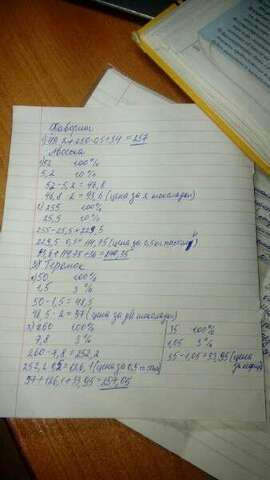 Фаворит
1) 49·2+250·0,5+34=257
Авоська
1) 52 100%
5,2 10%
52-5,2=46,8
46,8·2=93,6 (цена за 2 шоколадки)
2) 255 100%
25,5 10%
255-25,5=229,5
229,5·0,5=114,75 (цена за 0,5 кг
93,6+114,75+36=
3) Теремок
1) 50 100%
1,5 3%
50-1,5=48,5
48,5·2=97 (цена за две шоколадки)
2) 260 100%
7,8 3%
260-7,8=252,2
252,2·0,5=126,1 (цена за 0,5 кг
97+126,1+33,95=257,05
35 100%
1,05 3%
35-1,05=33,95 (цена
за кефир)